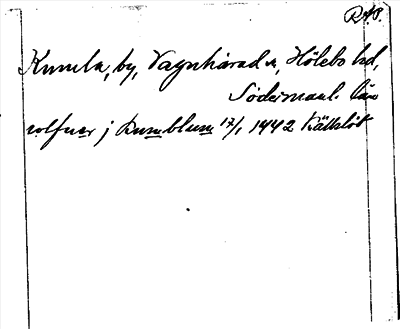 RAP.
Kumla, by, Vagnhärad s, Hölebo hd,
Södermanl. län
rolfuer j Kumblum 17/1 1442 Kälkslöt